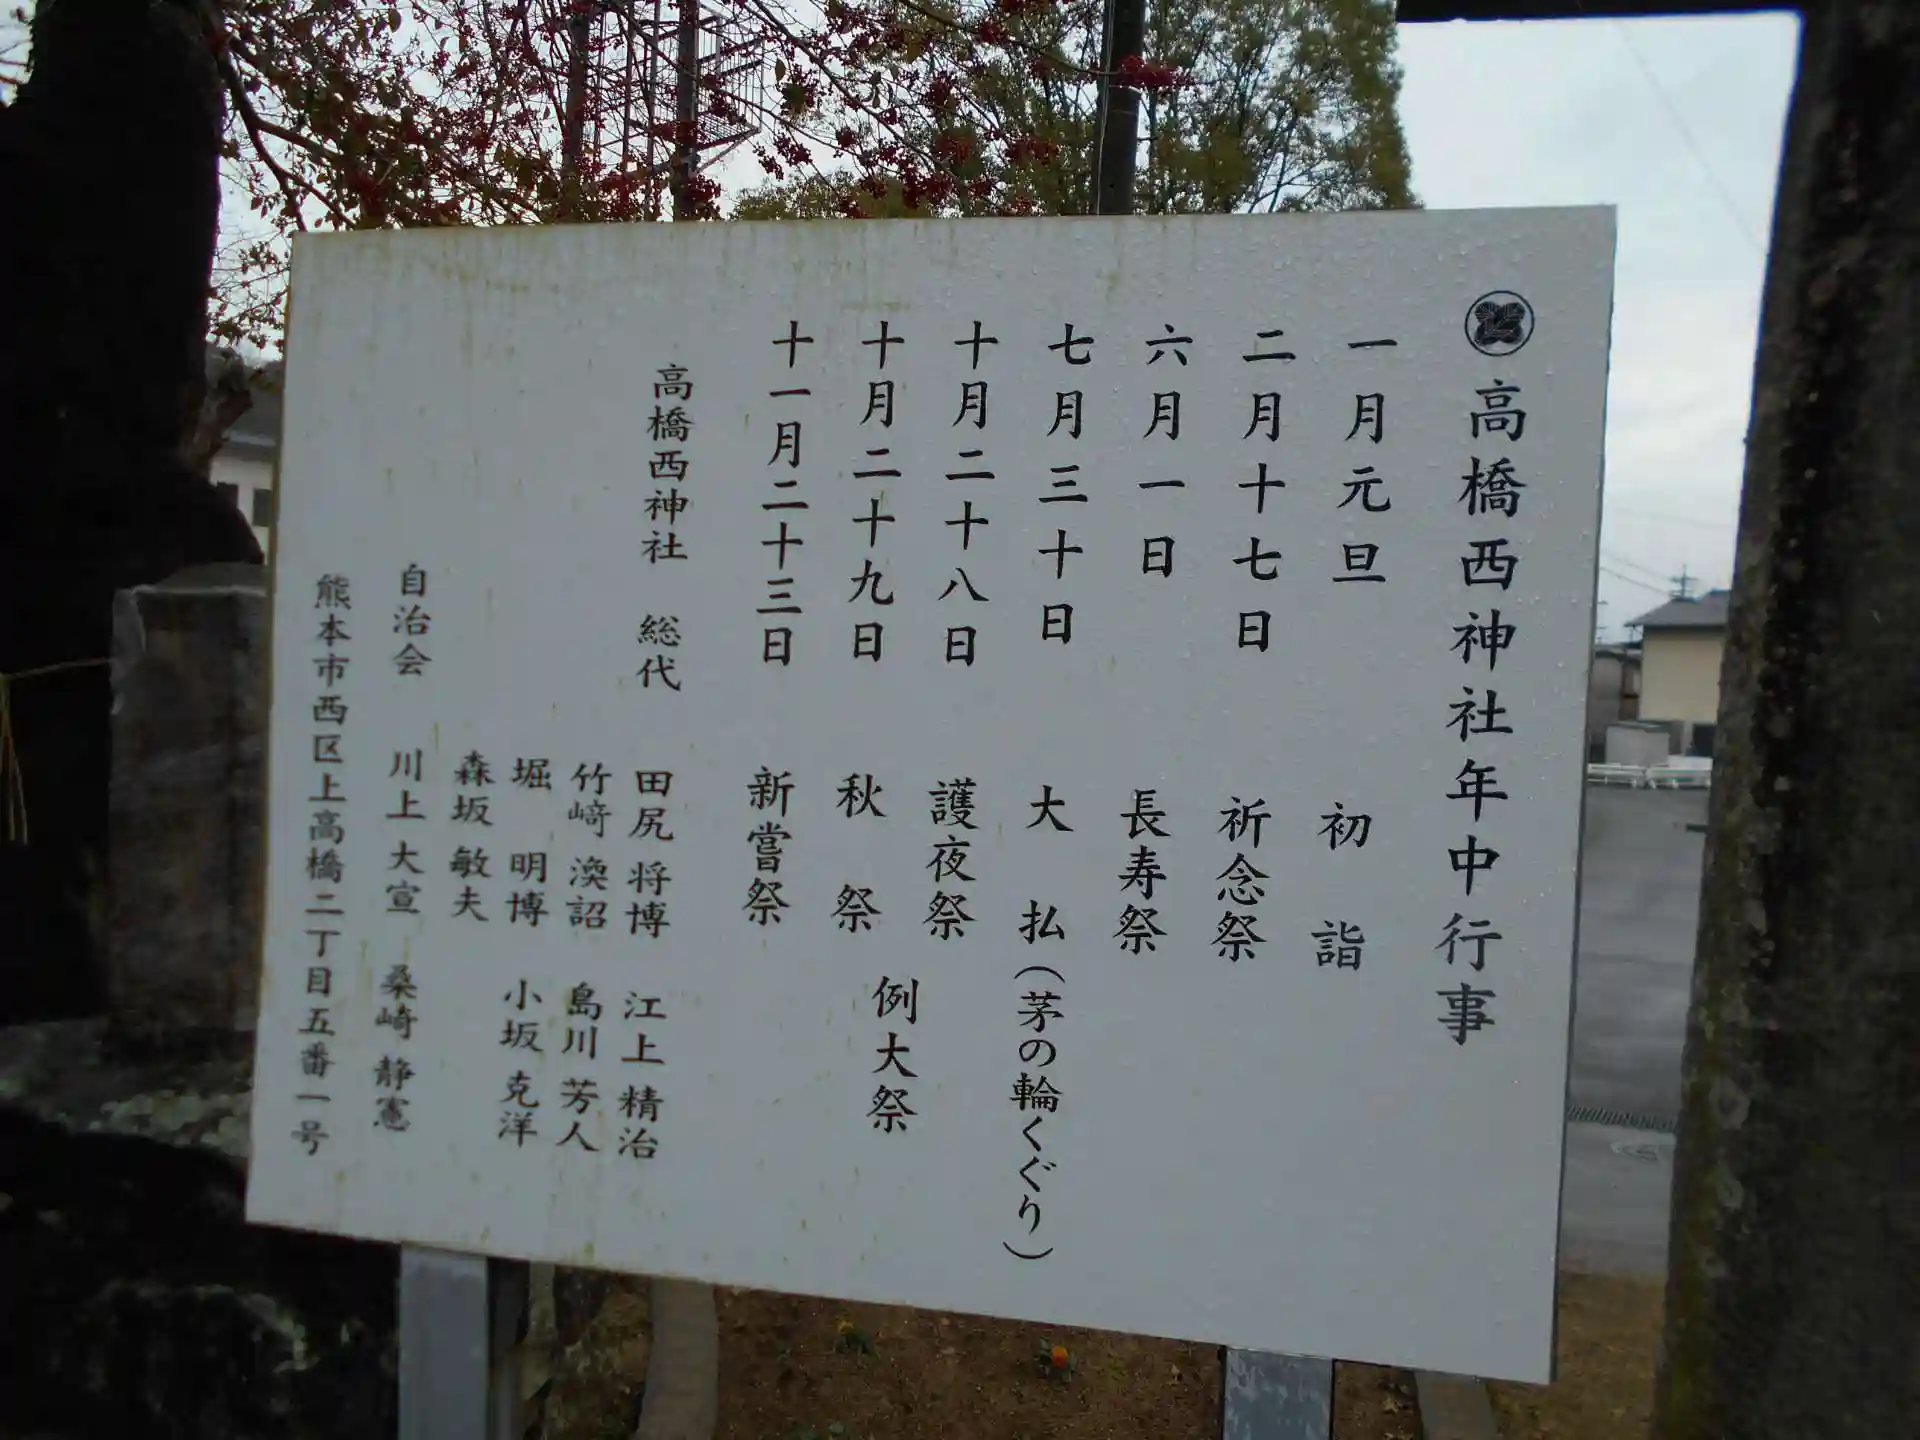 高橋西神社年中行事
一月元旦 初詣
二月十七日 祈念祭
六月一日 長寿祭
七月三十日 大払(茅の輪くぐり)
十月二十八日 護夜祭
例大祭
十月二十九日 秋祭
十一月二十三日 新嘗祭
高橋西神社 総代 田尻 将博 江上 精治
竹﨑 渙詔 島川 芳人
堀 明博 小坂 克洋
森坂 敏夫
自治会 川上 大宣 桑崎 静憲
熊本市西区上高橋二丁目五番一号